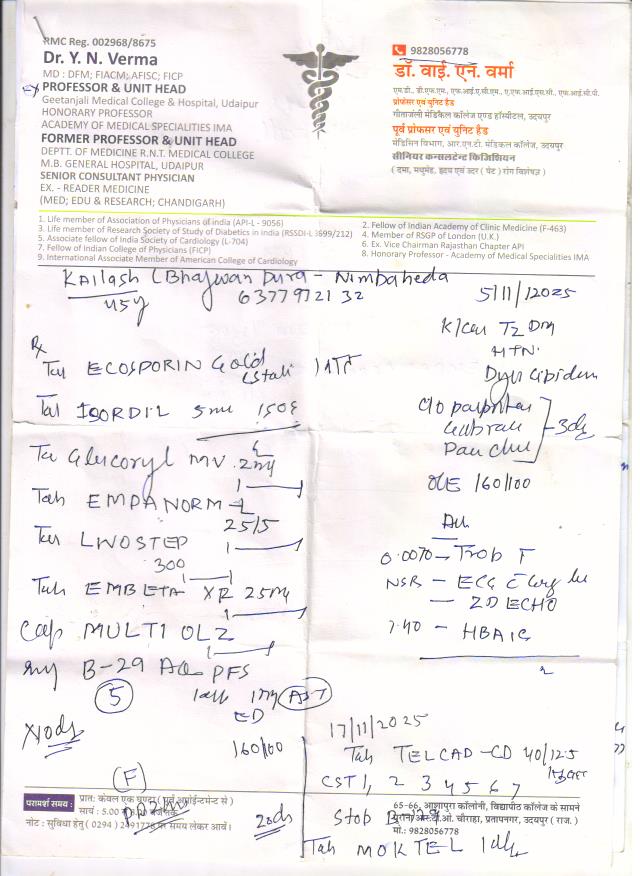 RMC Reg. 002968/8675
Dr. Y. N. Verma
MD : DFM; FIACM; AFISC; FICP
Ex PROFESSOR & UNIT HEAD
Geetanjali Medical College & Hospital, Udaipur
HONORARY PROFESSOR
ACADEMY OF MEDICAL SPECIALITIES IMA
FORMER PROFESSOR & UNIT HEAD
DEPTT. OF MEDICINE R.N.T. MEDICAL COLLEGE
M.B. GENERAL HOSPITAL, UDAIPUR
SENIOR CONSULTANT PHYSICIAN
EX. - READER MEDICINE
(MED; EDU & RESEARCH; CHANDIGARH)
9828056778
डॉ. वाई. एन. वर्मा
एम.डी., डी.एफ.एम., एफ.आई.ए.सी.एम., ए.एफ.आई.एस.सी., एफ.आई.सी.पी.
प्रोफेसर एवं यूनिट हैड
गीतांजली मेडिकल कॉलेज एण्ड हॉस्पीटल, उदयपुर
पूर्व प्रोफेसर एवं यूनिट हैड
मेडिसिन विभाग, आर.एन.टी. मेडिकल कॉलेज, उदयपुर
सीनियर कन्सलटेन्ट फिजिशियन
( दमा, मधुमेह, हृदय एवं उदर ( पेट ) रोग विशेषज्ञ )
1. Life member of Association of Physicians of india (API-L - 9056)
3. Life member of Research Society of Study of Diabetics in india (RSSDI-L3699/212)
5. Associate fellow of India Society of Cardiology (L-704)
7. Fellow of Indian College of Physicians (FICP)
9. International Associate Member of American College of Cardiology
2. Fellow of Indian Academy of Clinic Medicine (F-463)
4. Member of RSGP of London (U.K.)
6. Ex. Vice Chairman Rajasthan Chapter API
8. Honorary Professor - Academy of Medical Specialities IMA
Kailash Nimbaheda
45y 6377972132
5/11/2025
T2 DM
HTN.
Rx
Tab ECOSPORIN Gold
Tab ISORDIL 5mg
Tab Glucoryl MV 2mg
Tab EMPANORM-L
25/5
Tab LINOSTEP
300
Tab EMBETA XR 25mg
Cap MULTI OLZ
B-29 AQ PFS
5
AST
x10ds
160/100
F
O/E 160/100
0.0070 - Trop T
NSR - ECG
- 2D ECHO
7.40 - HBA1C
17/11/2025
Tab TELCAD-CD 40/12.5
CST 1, 2 3 4 5 6 7
Stop B-29
Tab MOKTEL
20ds
परामर्श समय : प्रात: केवल एक घण्टा ( पूर्व अपॉईन्टमेन्ट से )
सायं : 5.00
नोट : सुविधा हेतु ( 0294 ) 2491778 पर समय लेकर आवें।
65-66, आशापुरा कॉलोनी, विद्यापीठ कॉलेज के सामने
पुराना आर.टी.ओ. चौराहा, प्रतापनगर, उदयपुर ( राज. )
मो.: 9828056778